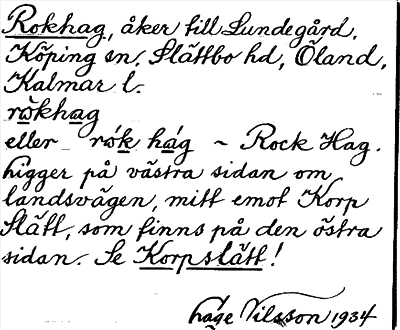 Rokhag, åker till Lundegård,
Köping sn. Slättbo hd, Öland,
Kalmar l.
rökhag
eller rók hág ~ Rock Hag.
Ligger på västra sidan om
landsvägen, mitt emot Korp
Slätt, som finns på den östra
sidan. Se Korpslätt!
Håge Nilsson 1934